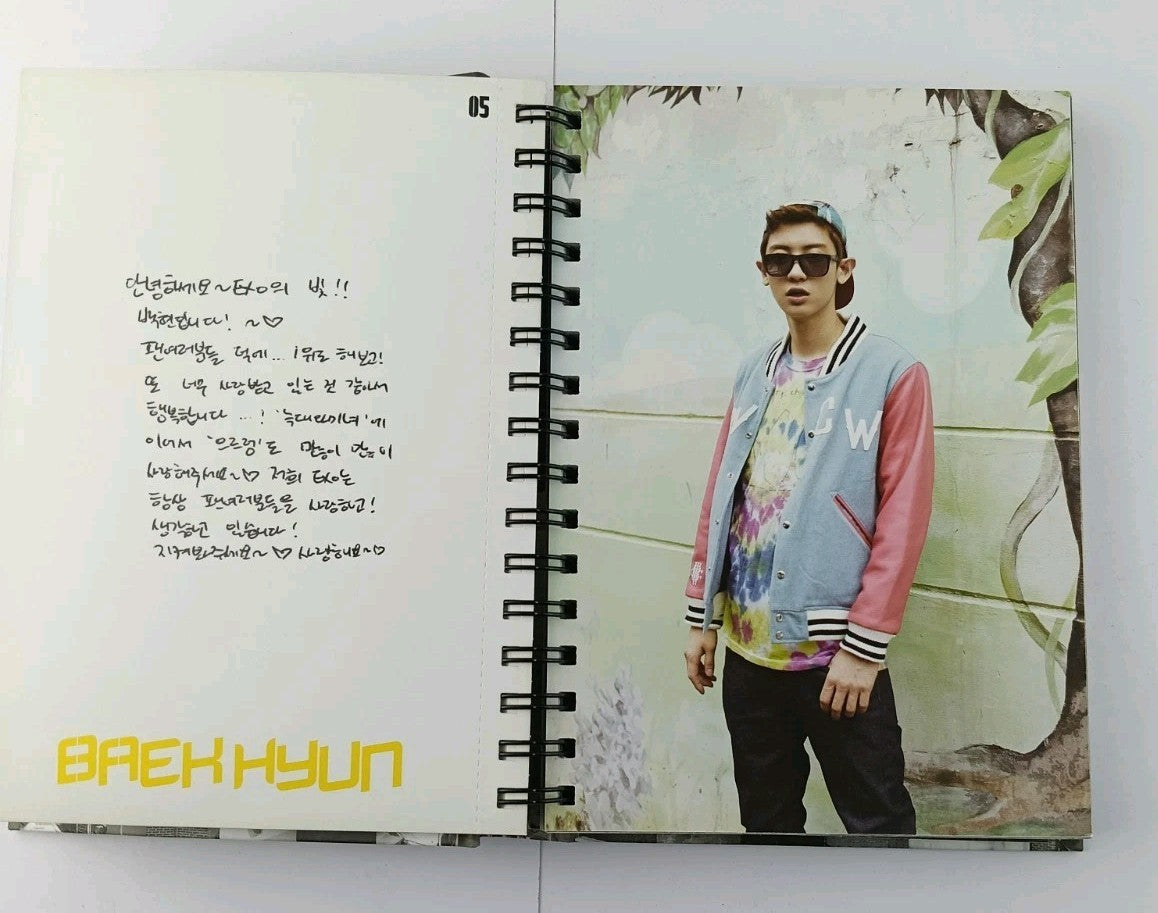 05
안녕하세요~ EXO의 빛!!
백현입니다! ~♡
팬여러분들 덕에... 1위도 해보고!
또 너무 사랑받고 있는 것 같아서
행복합니다 ...! '늑대와미녀'에
이어서 '으르렁'도 많이 많이
사랑해주세요~♡ 저희 EXO는
항상 팬여러분들을 사랑하고!
생각하고 있습니다!
지켜봐주세요~♡ 사랑해요~♡
BAEKHYUN
CW